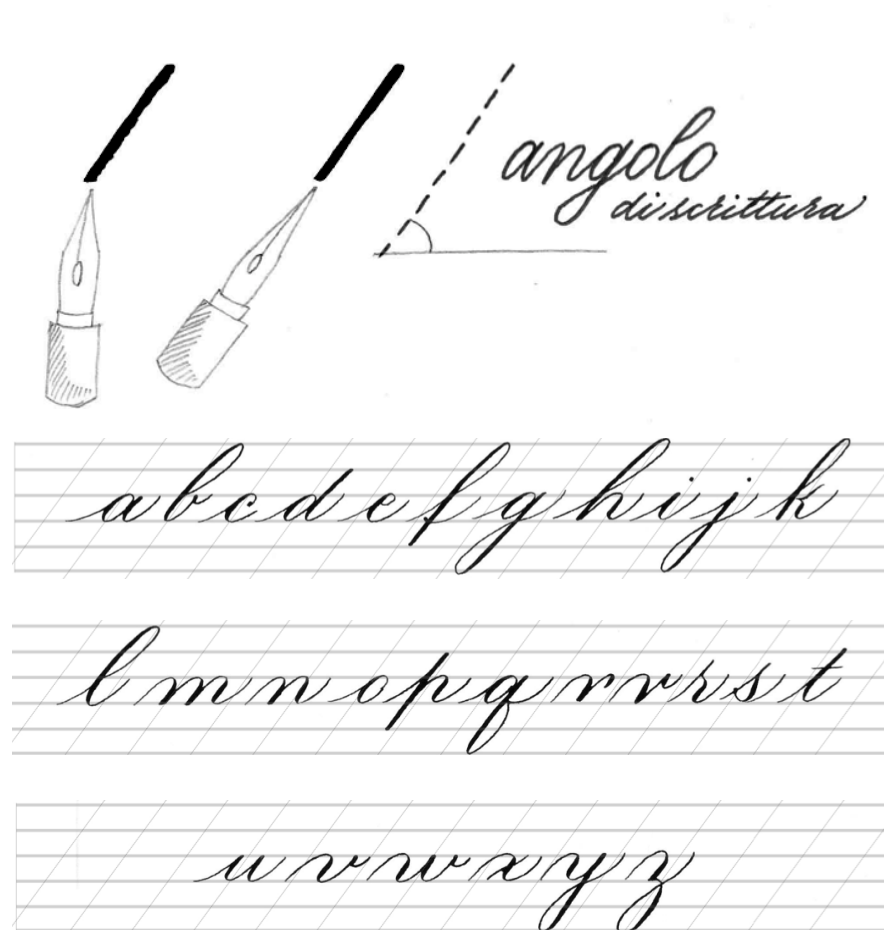 angolo
di scrittura
a b c d e f g h i j k
l m n o p q r r r s t
u v w x y z